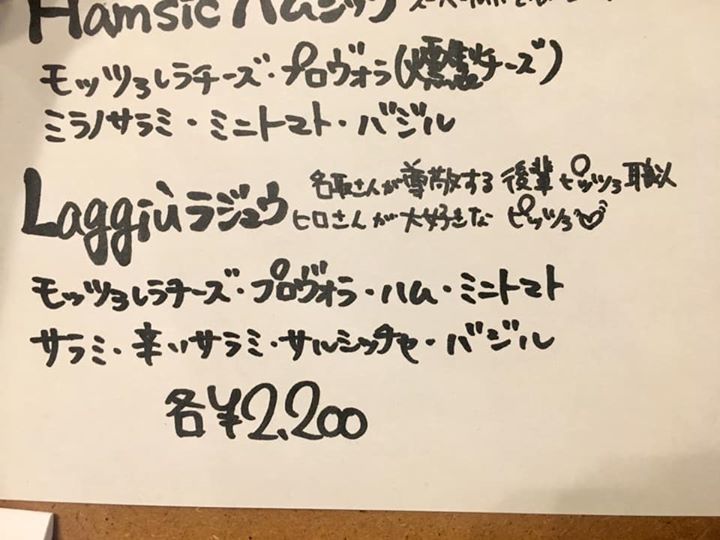 Hamsic ハムシック
モッツァレラチーズ・プロヴォラ(燻製チーズ)
ミラノサラミ・ミニトマト・バジル
Laggiù ラジュウ 名取さんが尊敬する後輩ピッツァ職人
ヒロさんが大好きな ピッツァ♡
モッツァレラチーズ・プロヴォラ・ハム・ミニトマト
サラミ・辛いサラミ・サルシッチャ・バジル
各¥2,200